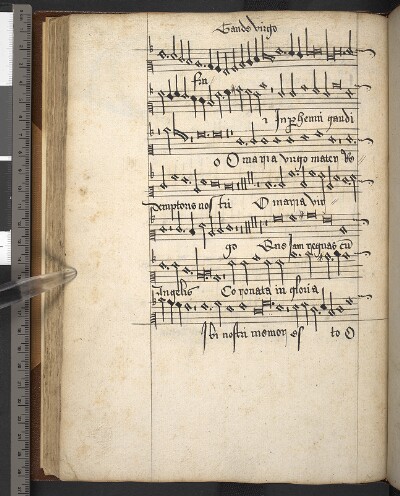 Gaude virgo
fin
i In phemii gaudi
o O maria virgo mater
demptoris nostri O maria vir
go Que iam regnas cu
Angelis Coronata in gloria
Ibi nostri memor es to O